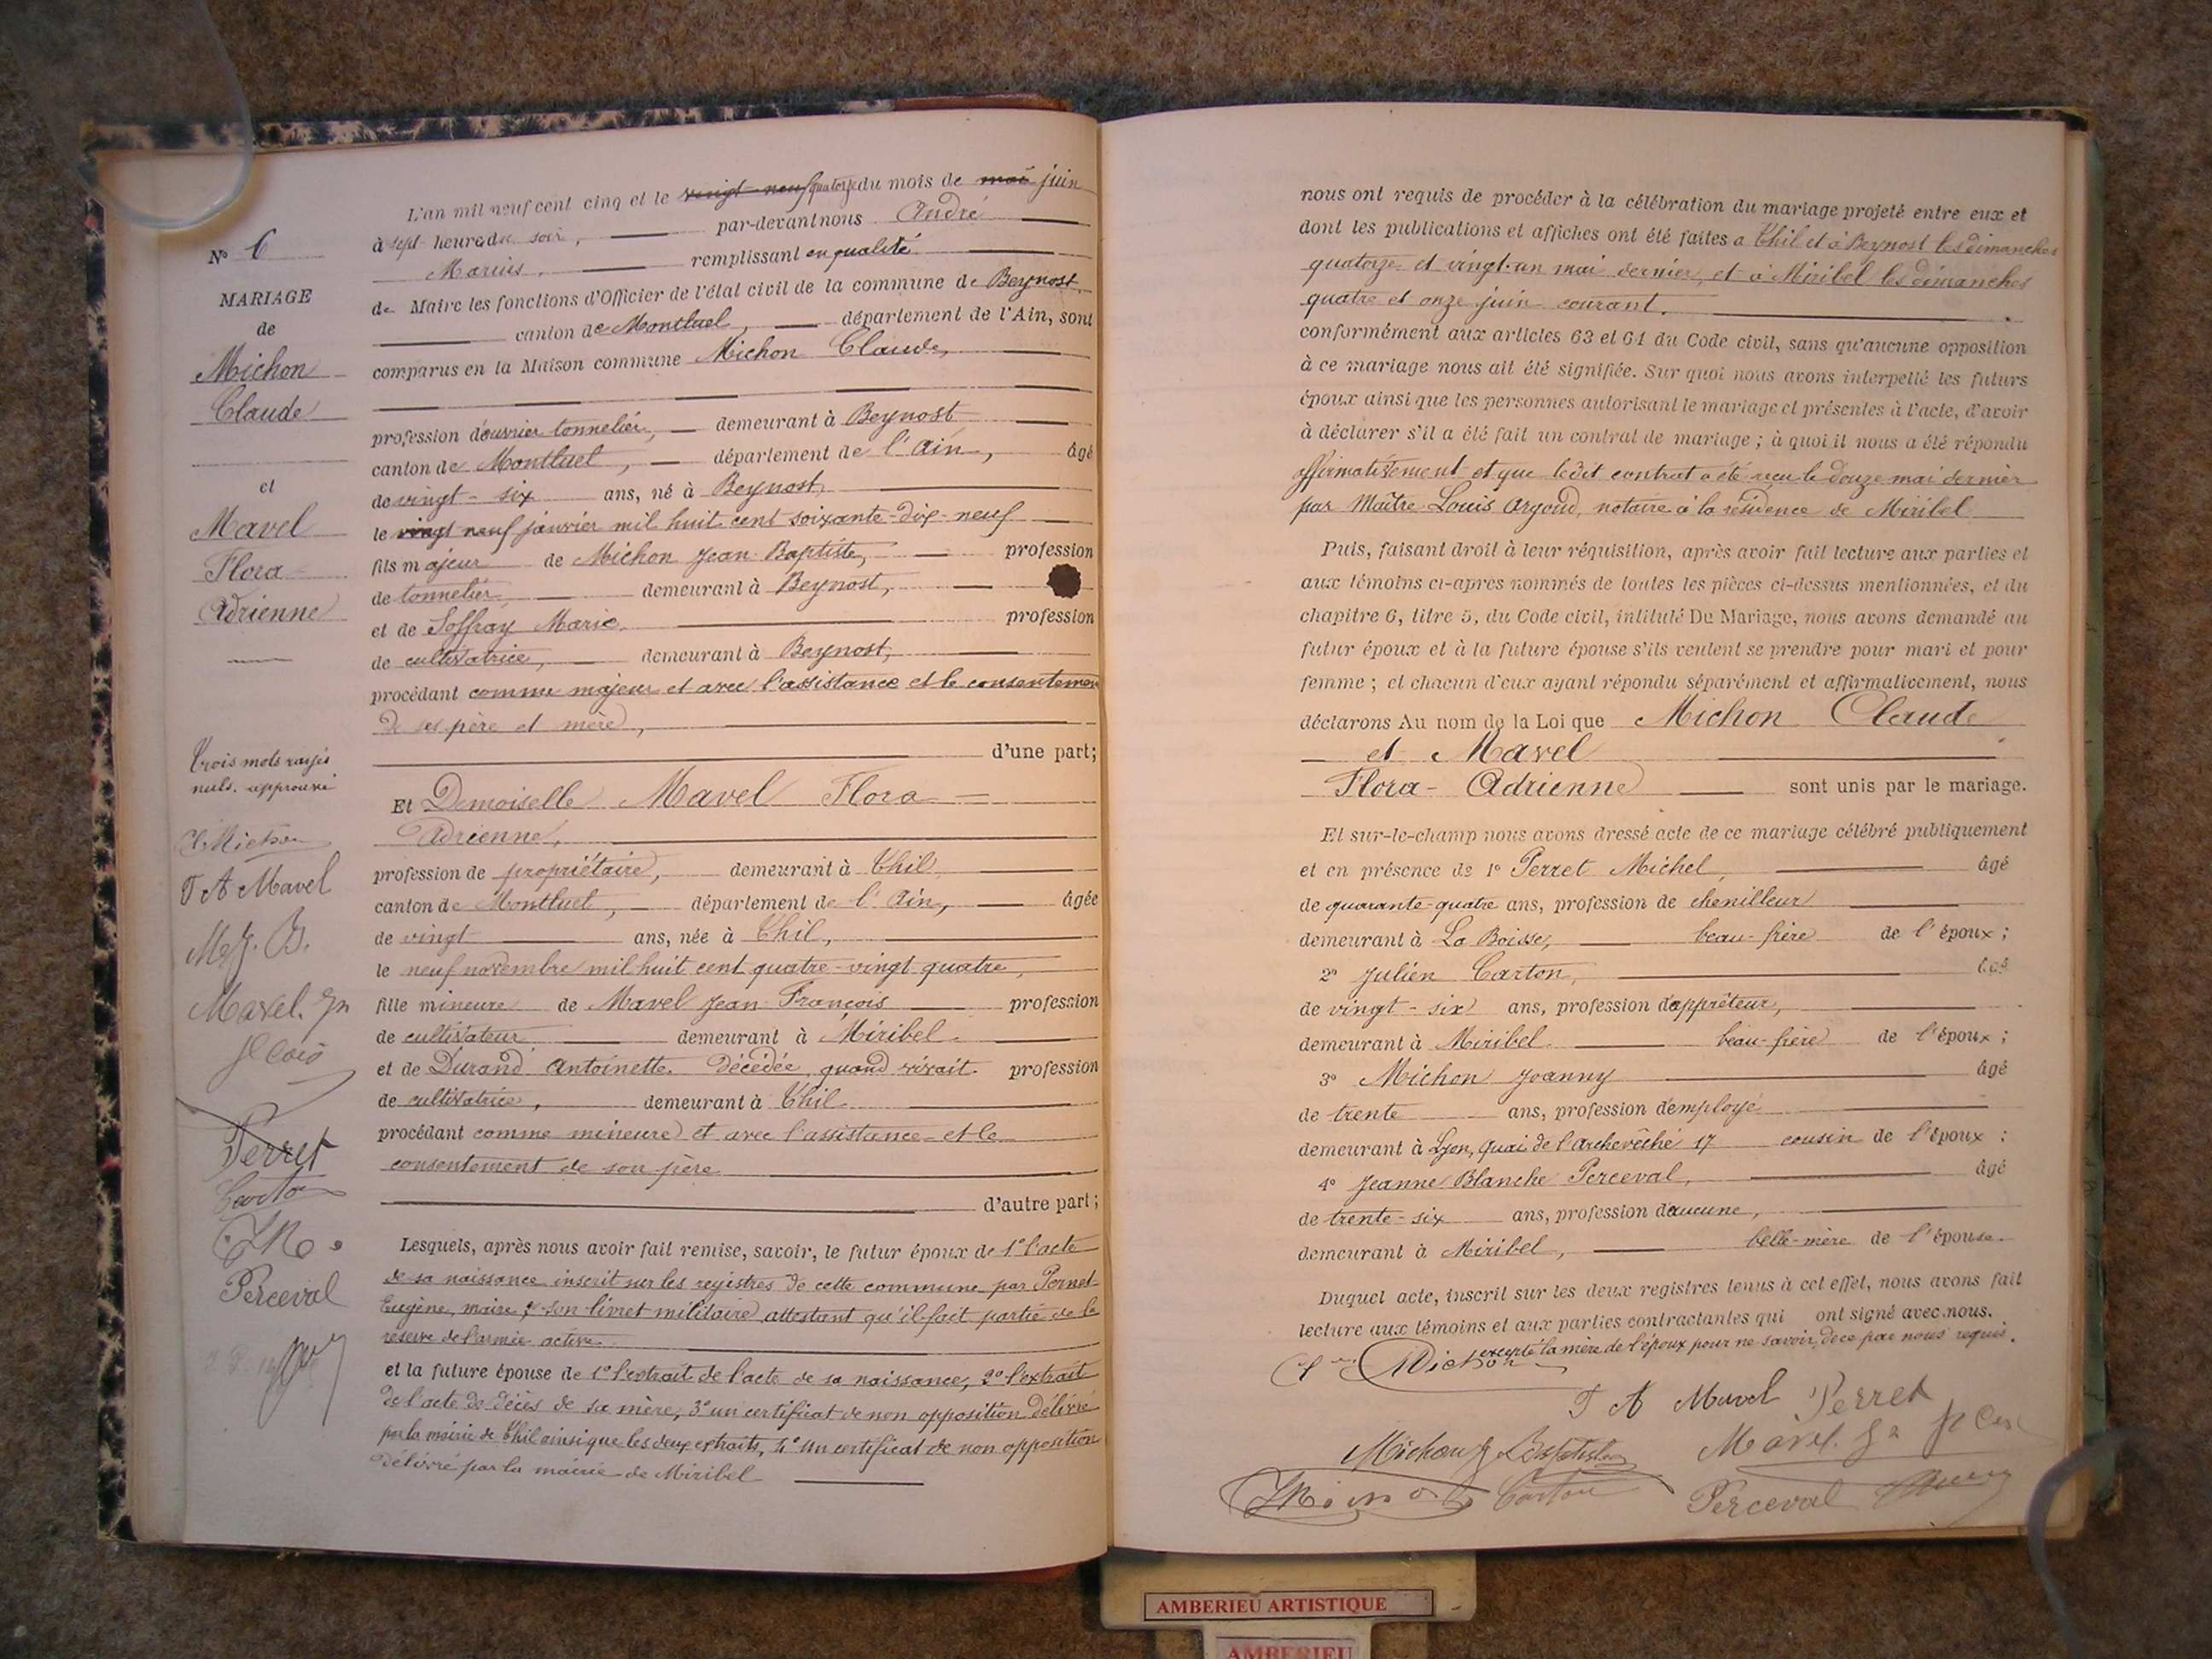 L'an mil neuf cent cinq et le vingt-neuf quatorze du mois de mai juin
à sept heure du soir, par-devant nous André
Marius, remplissant en qualité
de Maire les fonctions d'Officier de l'état civil de la commune de Beynost
canton de Montluel, département de l'Ain, sont
comparus en la Maison commune Michon Claude,
profession d'ouvrier tonnelier, demeurant à Beynost
canton de Montluel, département de l'Ain, âgé
de vingt-six ans, né à Beynost,
le vingt neuf janvier mil huit cent soixante-dix-neuf
fils majeur de Michon Jean-Baptiste, profession
de tonnelier demeurant à Beynost,
et de Soffray Marie profession
de cultivatrice, demeurant à Beynost,
procédant comme majeur et avec l'assistance et le consentemen
de ses père et mère,
d'une part;
Et Demoiselle Mavel Flora
Adrienne,
profession de propriétaire, demeurant à Thil,
canton de Montluel, département de l'Ain, âgée
de vingt ans, née à Thil,
le neuf novembre mil huit cent quatre-vingt quatre,
fille mineure de Mavel Jean François profession
de cultivateur demeurant à Miribel.
et de Durand Antoinette. décédée, quand vivait profession
de cultivatrice, demeurant à Thil
procédant comme mineure et avec l'assistance et le
consentement de son père
d'autre part;
Lesquels, après nous avoir fait remise, savoir, le futur époux de 1° l'acte
de sa naissance inscrit sur les registres de cette commune par Pernet
Eugène, maire; 2° son livret militaire attestant qu'il fait partie de la
réserve de l'armée active
et la future épouse de 1° l'extrait de l'acte de sa naissance, 2° l'extrait
de l'acte de décès de sa mère, 3° un certificat de non opposition délivré
par la mairie de Thil ainsi que les deux extraits, 4° un certificat de non opposition
délivré par la mairie de Miribel
N° 6
MARIAGE
de
Michon
Claude
et
Mavel
Flora
Adrienne
Trois mots rayés
nuls. approuvé
Cl Michon
F A Mavel
M. J. B.
Mavel. Jn
fcois
Perret
Carton
J M.
Perceval
nous ont requis de procéder à la célébration du mariage projeté entre eux et
dont les publications et affiches ont été faites a Thil et à Beynost les dimanches
quatorze et vingt-un mai dernier, et à Miribel les dimanches
quatre et onze juin courant.
conformément aux articles 63 et 64 du Code civil, sans qu'aucune opposition
à ce mariage nous ait été signifiée. Sur quoi nous avons interpellé les futurs
époux ainsi que les personnes autorisant le mariage et présentes à l'acte, d'avoir
à déclarer s'il a été fait un contrat de mariage; à quoi il nous a été répondu
affirmativement et que ledit contrat a été reçu le douze mai dernier
par Maître Louis Argoud, notaire à la résidence de Miribel
Puis, faisant droit à leur réquisition, après avoir fait lecture aux parties et
aux témoins ci-après nommés de toutes les pièces ci-dessus mentionnées, et du
chapitre 6, titre 5, du Code civil, intitulé Du Mariage, nous avons demandé au
futur époux et à la future épouse s'ils veulent se prendre pour mari et pour
femme; et chacun d'eux ayant répondu séparément et affirmativement, nous
déclarons Au nom de la Loi que Michon Claude
et Mavel
Flora-Adrienne sont unis par le mariage.
Et sur-le-champ nous avons dressé acte de ce mariage célébré publiquement
et en présence de 1° Perret Michel, âgé
de quarante-quatre ans, profession de chenilleur
demeurant à La Boisse, beau-frère de l'époux;
2° Julien Carton, âgé
de vingt-six ans, profession d'apprêteur,
demeurant à Miribel beau-frère de l'époux;
3° Michon Joanny âgé
de trente ans, profession d'employé
demeurant à Lyon, quai de l'archevêché 17 cousin de l'époux;
4° Jeanne Blanche Perceval, âgé
de trente-six ans, profession d'aucune,
demeurant à Miribel, belle-mère de l'épouse.
Duquel acte, inscrit sur les deux registres tenus à cet effet, nous avons fait
lecture aux témoins et aux parties contractantes qui ont signé avec nous.
excepté la mère de l'époux pour ne savoir, de ce par nous requis.
Michon
F A Mavel Perret
Michon J Baptiste Mavel. Jn
Carton Perceval
AMBERIEU ARTISTIQUE
AMBERIEU